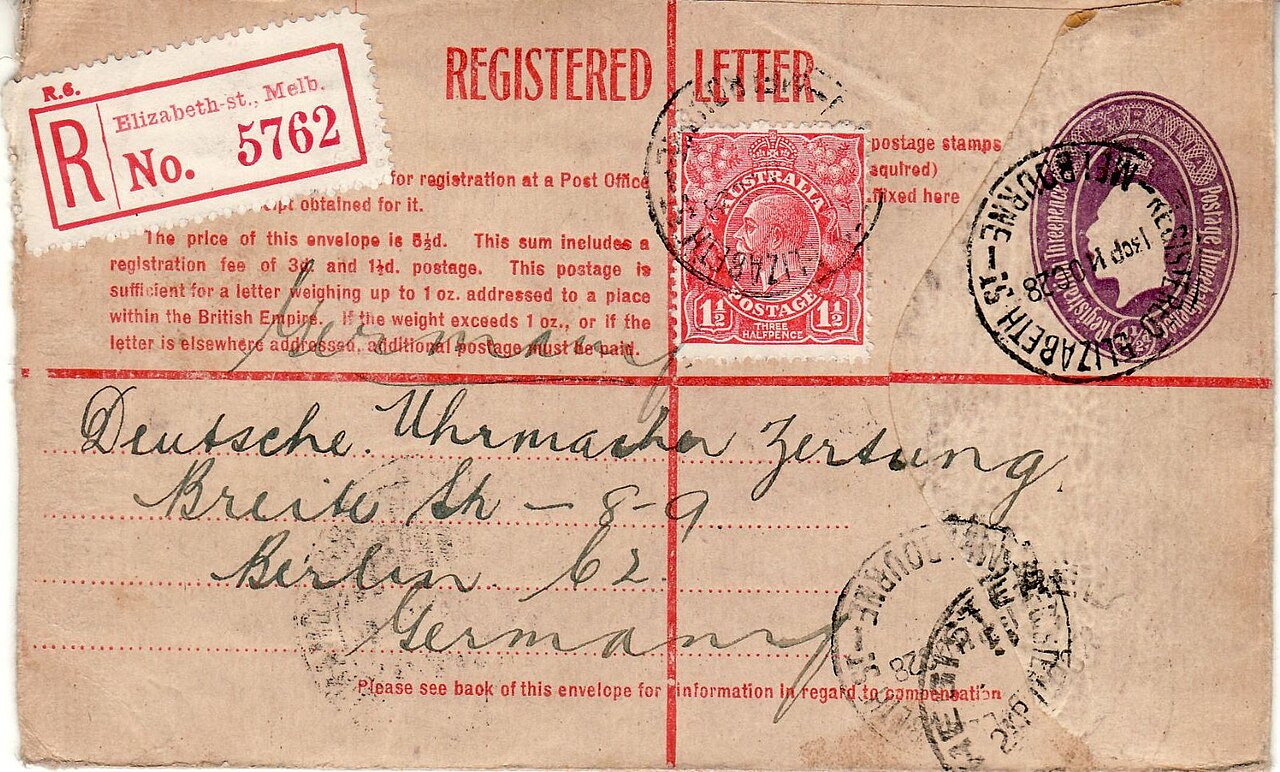 REGISTERED LETTER
R.6.
R
Elizabeth-st., Melb.
No. 5762
for registration at a Post Office
obtained for it.
The price of this envelope is 5½d. This sum includes a
registration fee of 3d. and 1½d. postage. This postage is
sufficient for a letter weighing up to 1 oz. addressed to a place
within the British Empire. If the weight exceeds 1 oz., or if the
letter is elsewhere addressed, additional postage must be paid.
postage stamps
equired)
ffixed here
AUSTRALIA
1½ POSTAGE 1½
THREE
HALFPENCE
Postage Three
Threepence
REGISTERED
MELBOURNE
ELIZABETH ST
28
Germany
Deutsche Uhrmacher Zeitung
Breite Str - 8-9
Berlin C2.
Germany
Please see back of this envelope for information in regard to compensation
28